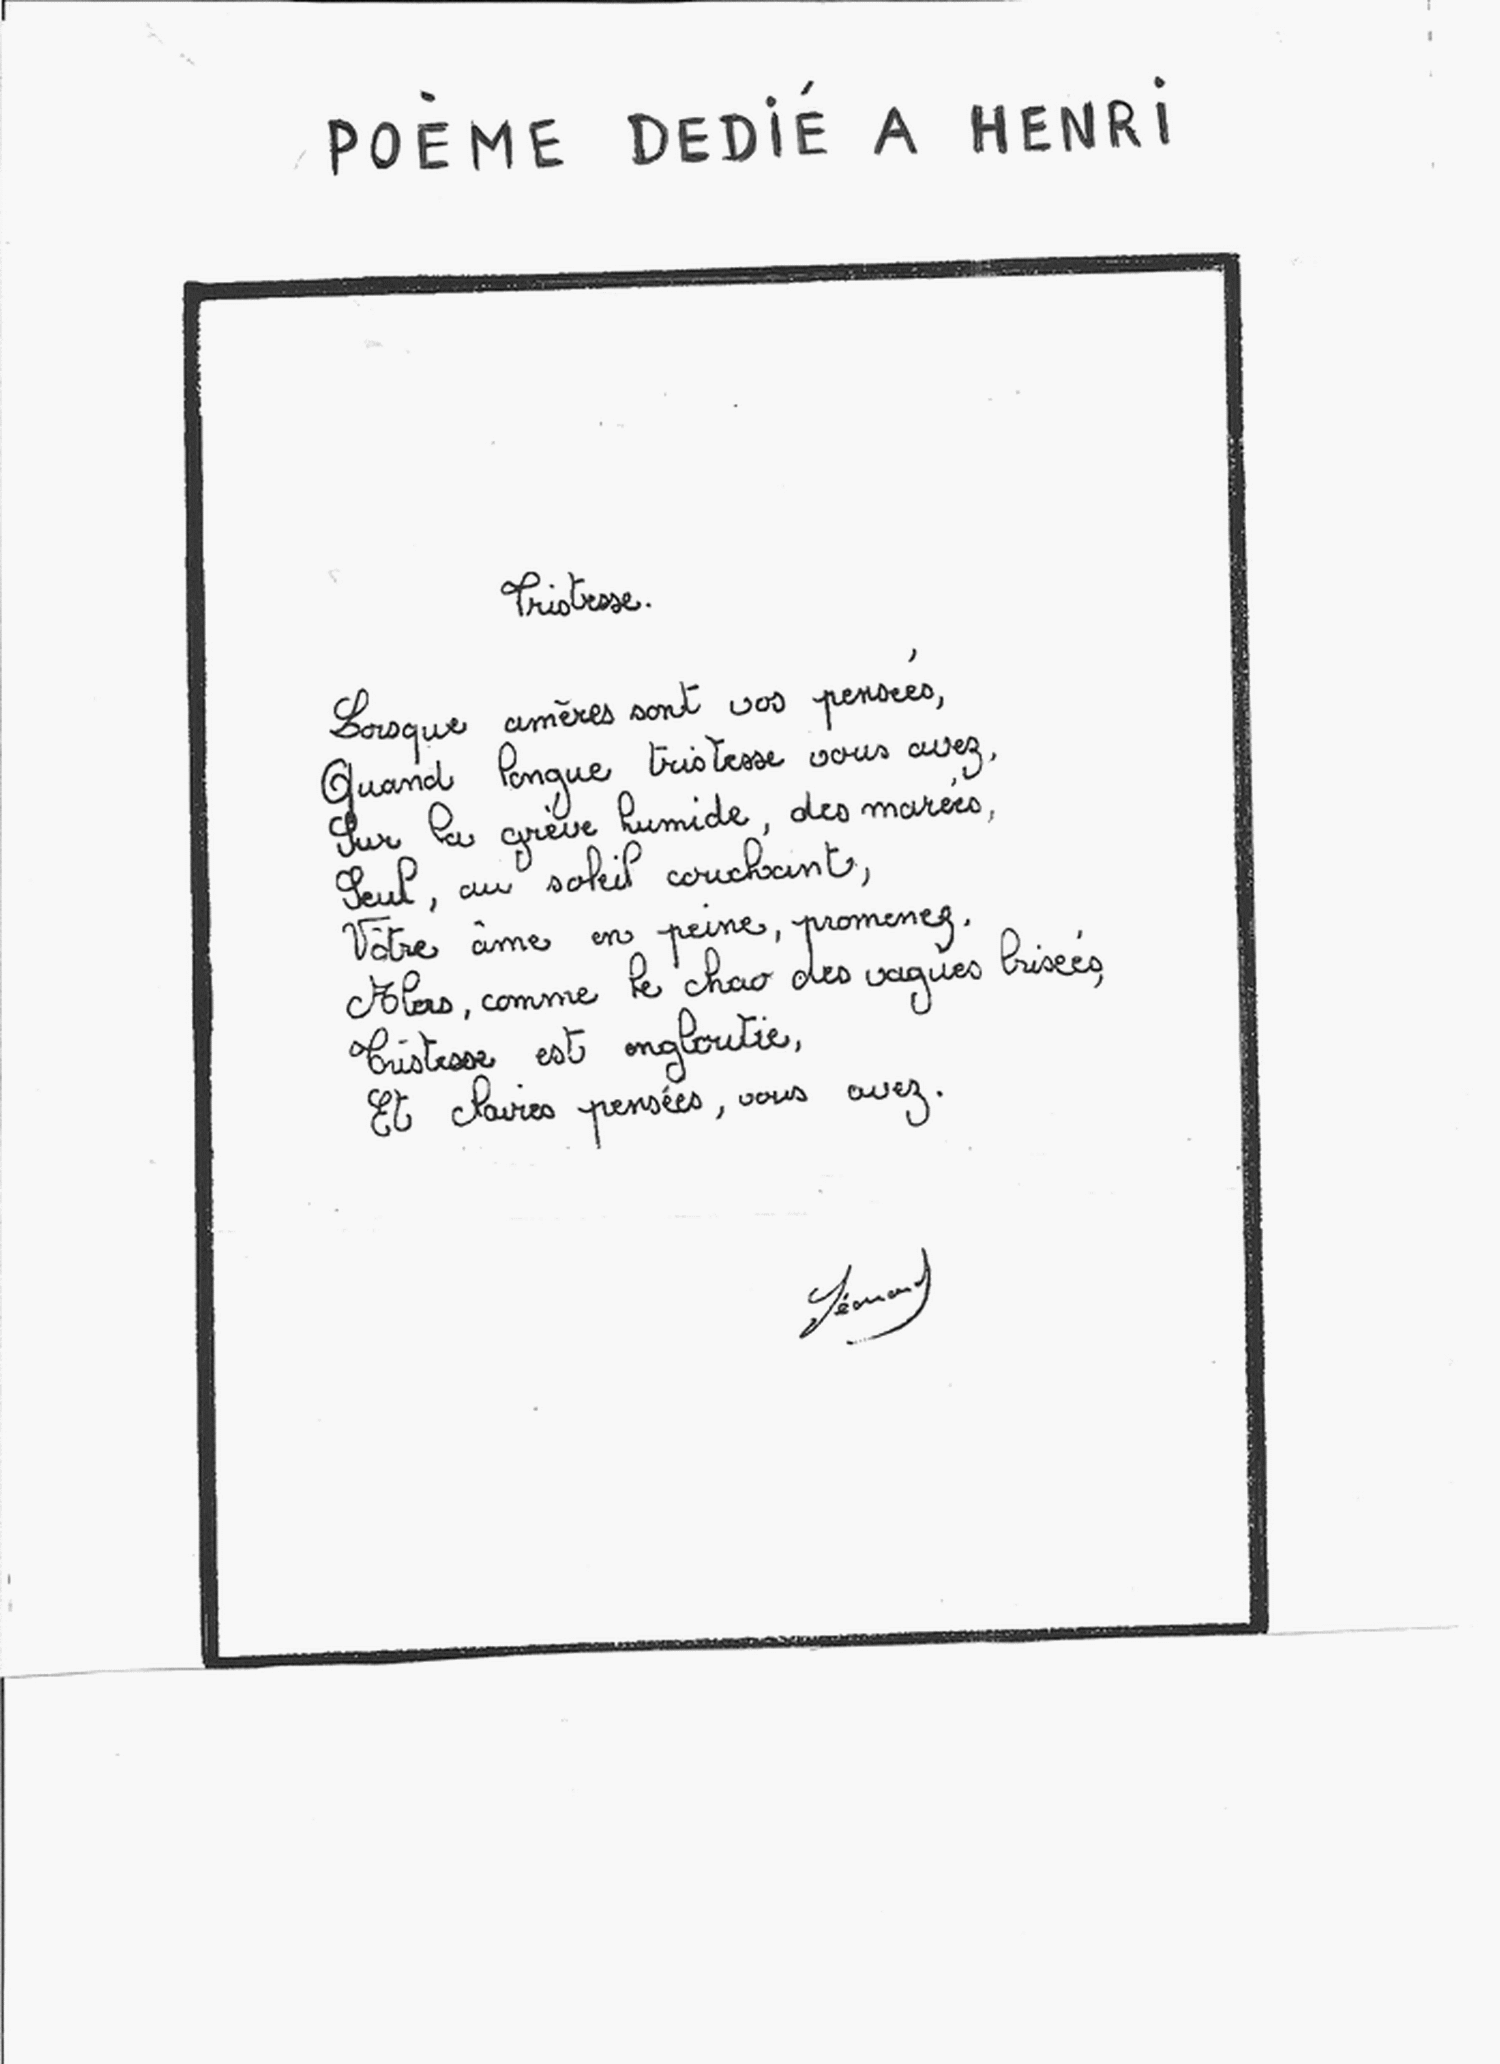 POÈME DEDIÉ A HENRI
Tristesse.
Lorsque amères sont vos pensées,
Quand longue tristesse vous avez,
Sur la grève humide, des marées,
Seul, au soleil couchant,
Vôtre âme en peine, promenez.
Alors, comme le chao des vagues brisées,
Tristesse est engloutie,
Et claires pensées, vous avez.
Léonard